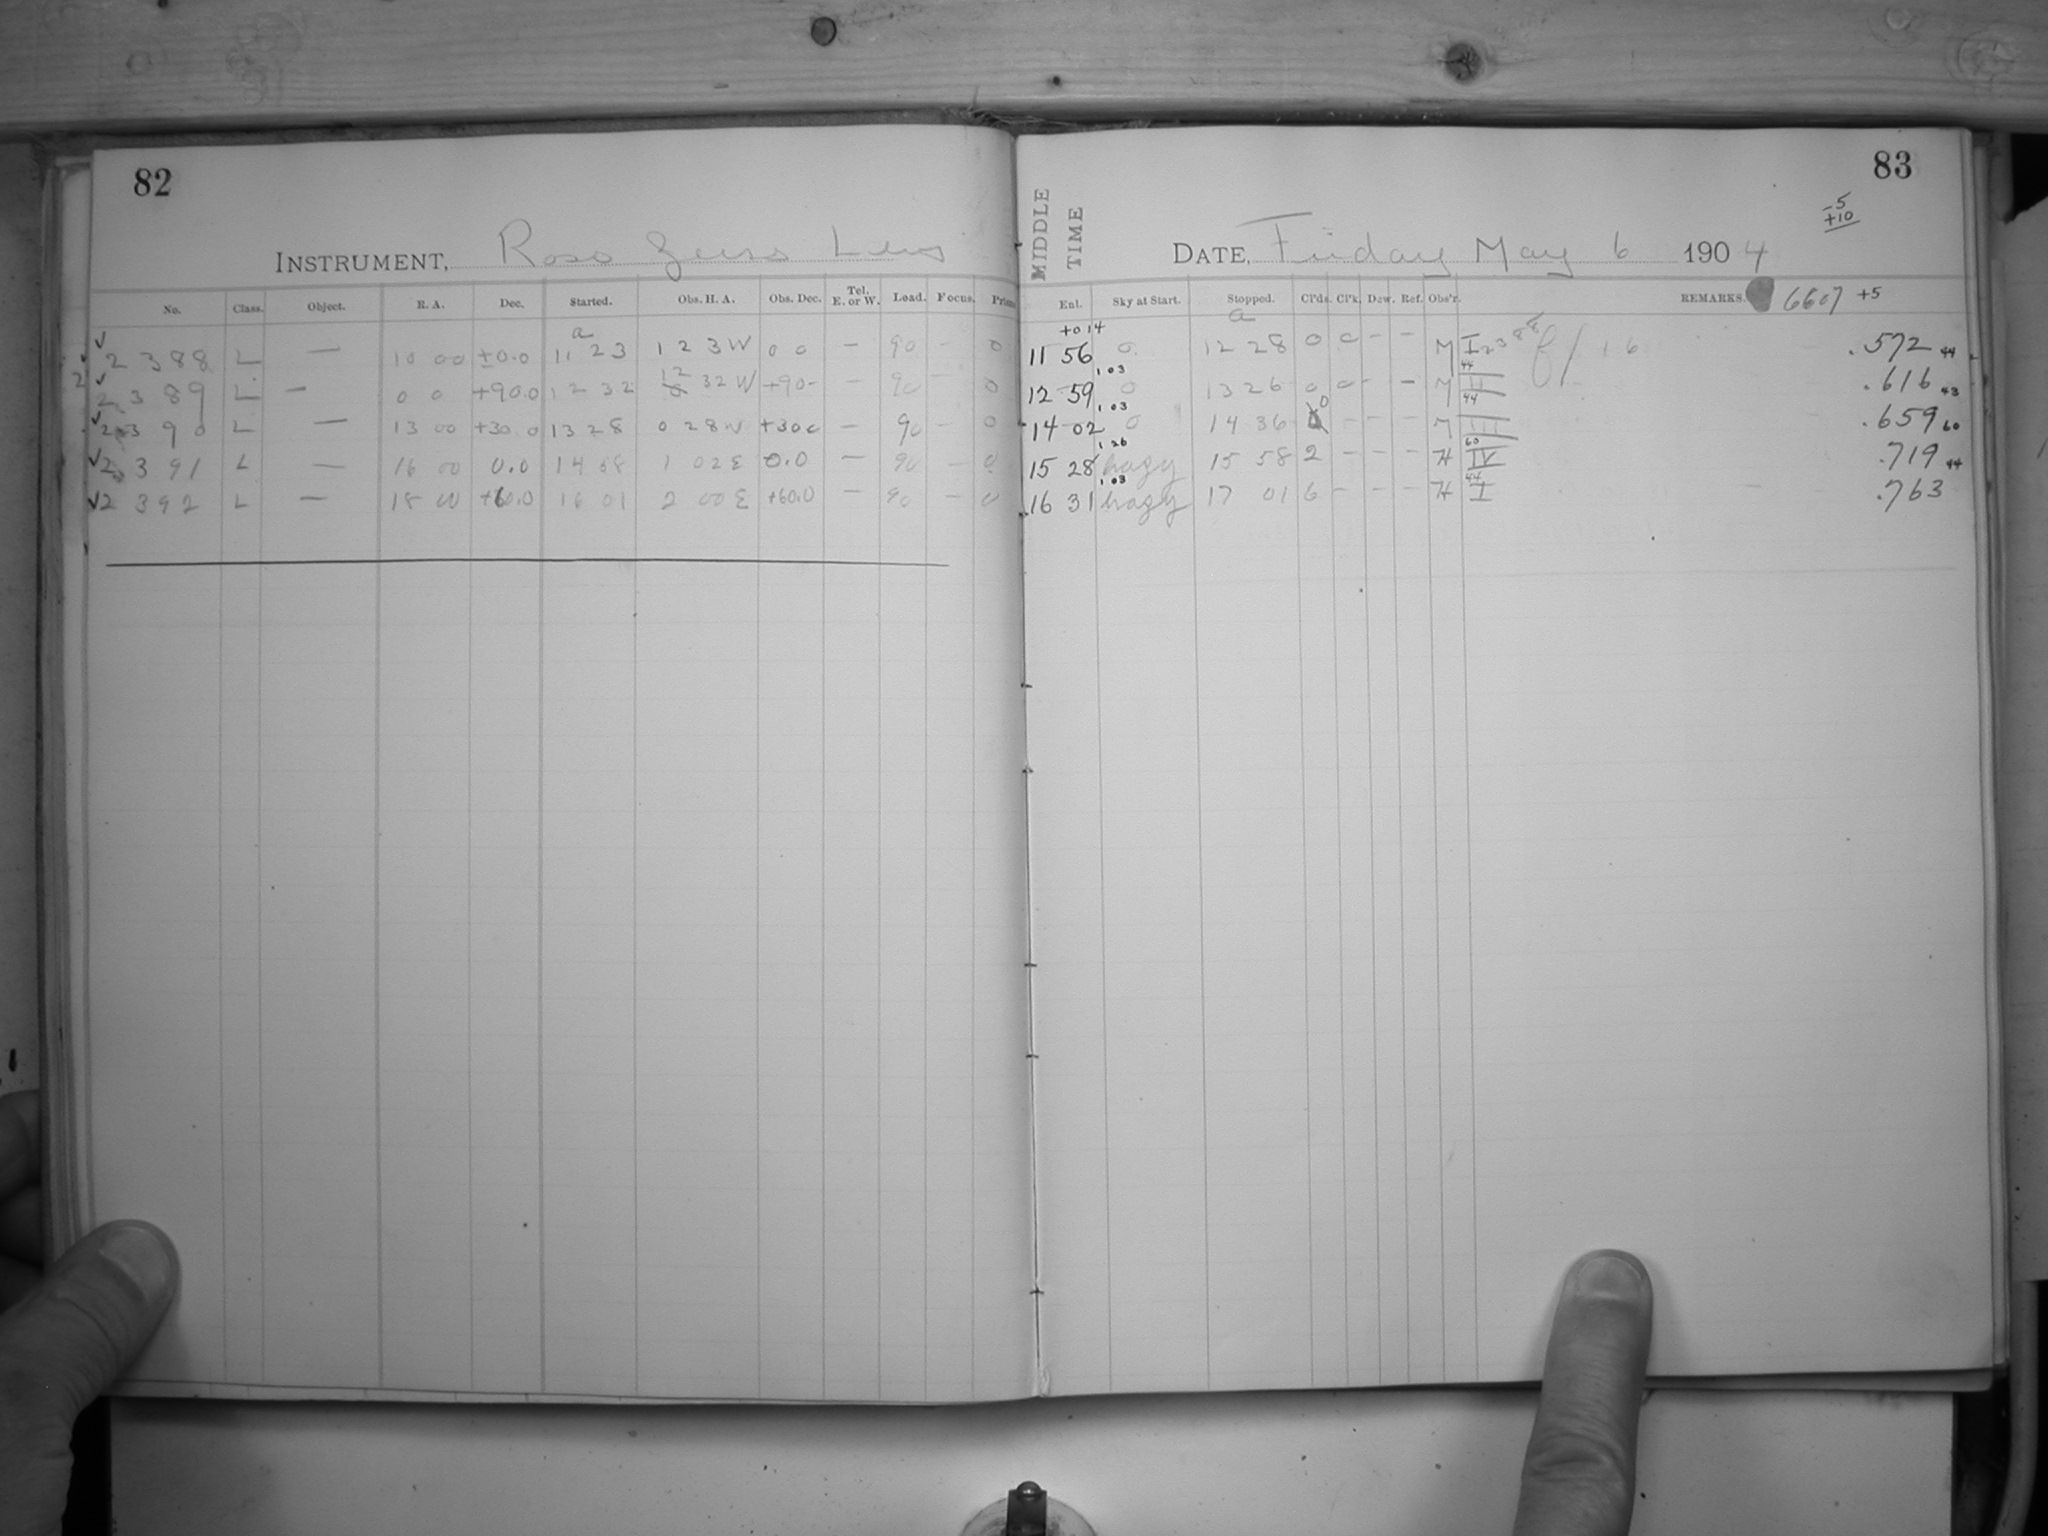 82
INSTRUMENT, Ross Zeiss Lens
No. Class. Object. R. A. Dec. Started. Obs. H. A. Obs. Dec. Tel. E. or W. Load. Focus.
a
✓ 2 388 L — 10 00 ±0.0 11 23 1 23 W 0 0 — 90 — 0
✓ 2 389 L — 0 0 +90.0 12 32 12 32 W +90- — 90 — 0
✓ 2 390 L — 13 00 +30.0 13 28 0 28 W +300 — 90 — 0
✓ 2 391 L — 16 00 0.0 14 58 1 02 E 0.0 — 90 — 0
✓ 2 392 L — 18 00 +60.0 16 01 2 00 E +60.0 — 90 — 0
83
-5
+10
MIDDLE
TIME
DATE, Friday May 6 1904
Ent. Sky at Start. Stopped. Cl'ds. Cl'k. Dew. Ref. Obs'r. REMARKS. 6607 +5
+014 a
11 56 0 12 28 0 0 - - M I f/16 .572 44
1 03 44
12 59 0 13 26 0 0 - - M II .616 43
1 03 44
14 02 0 14 36 0 - - - M III .659 60
1 26 60
15 28 hazy 15 58 2 - - - H IV .719 44
1 03 44
16 31 hazy 17 01 6 - - - H I .763